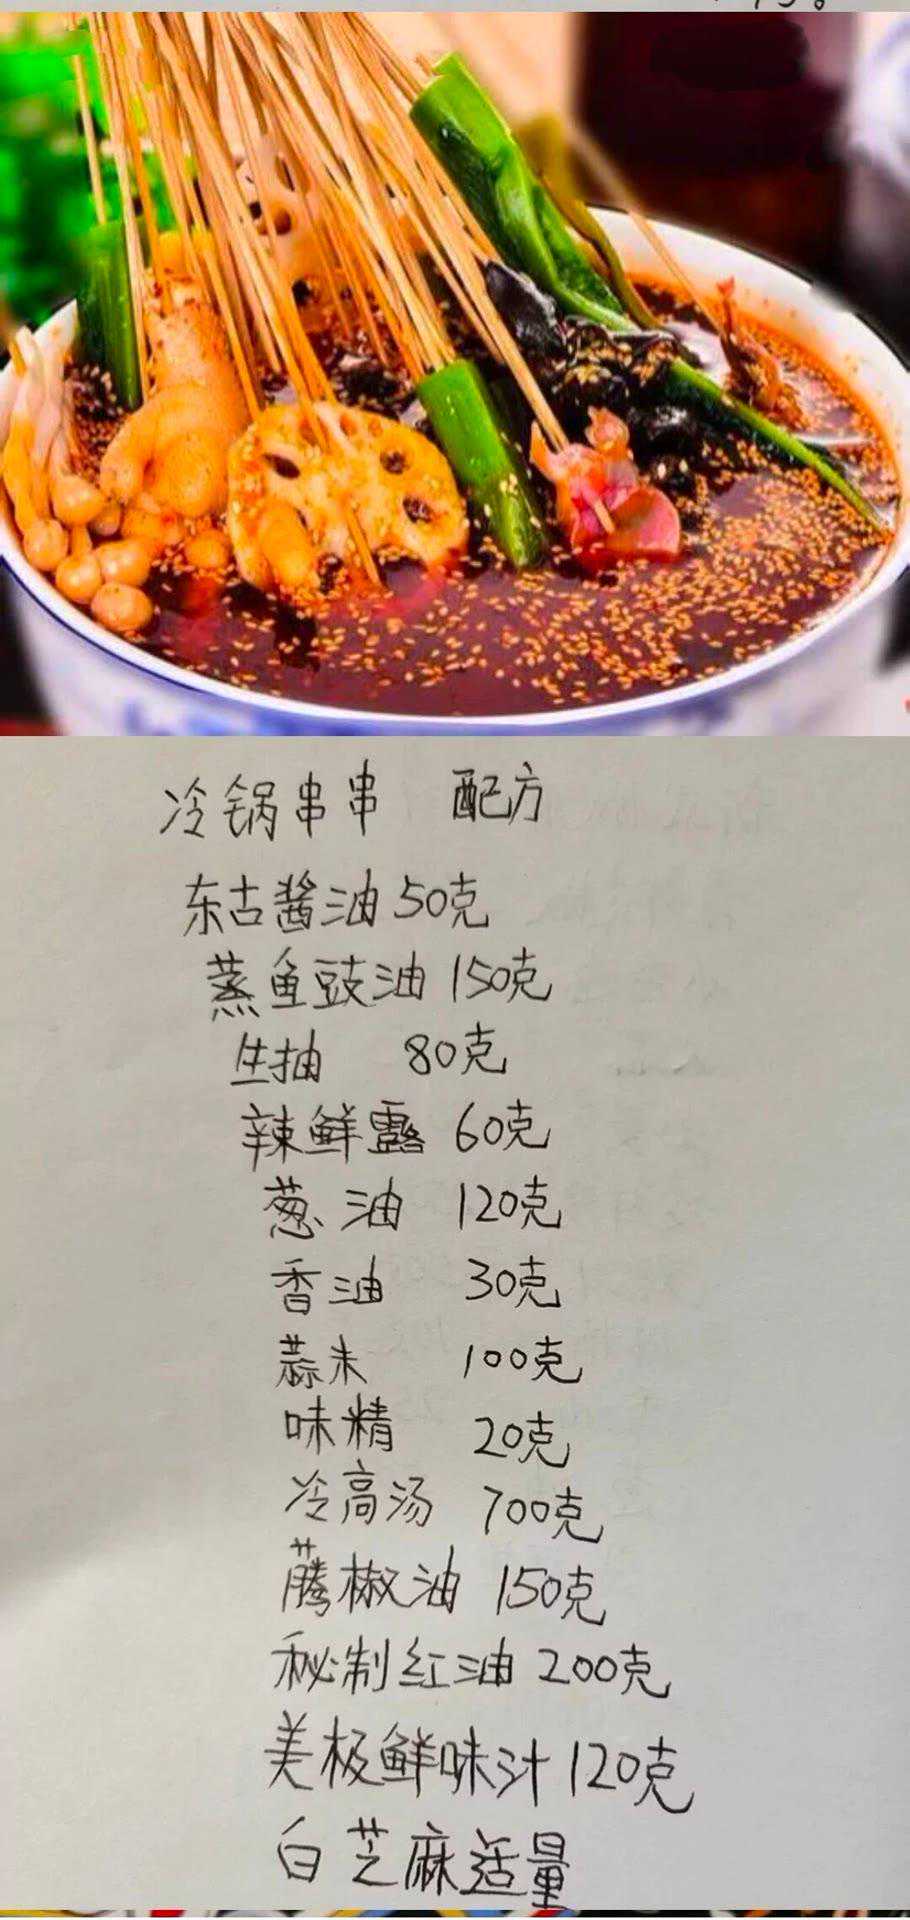 冷锅串串 配方
东古酱油 50克
蒸鱼豉油 150克
生抽 80克
辣鲜露 60克
葱油 120克
香油 30克
蒜末 100克
味精 20克
冷高汤 700克
藤椒油 150克
秘制红油 200克
美极鲜味汁 120克
白芝麻适量